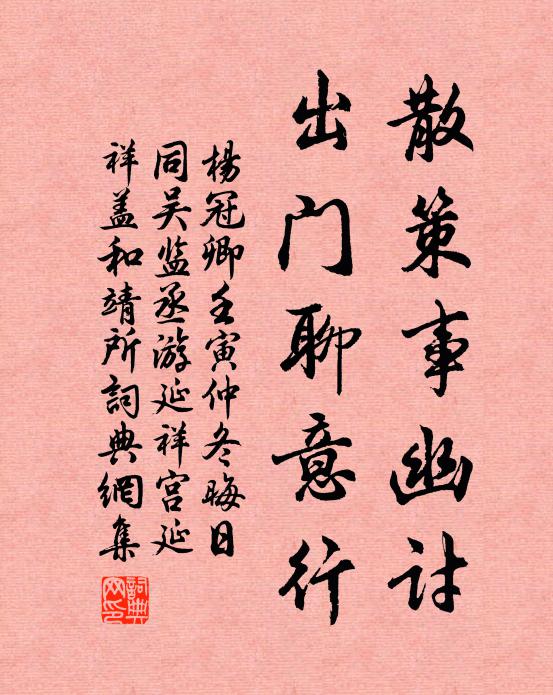 散策事幽讨
出门聊意行
杨冠卿壬寅仲冬晦日
同吴监丞游延祥宫延
祥盖和靖所词典网集
词典网印